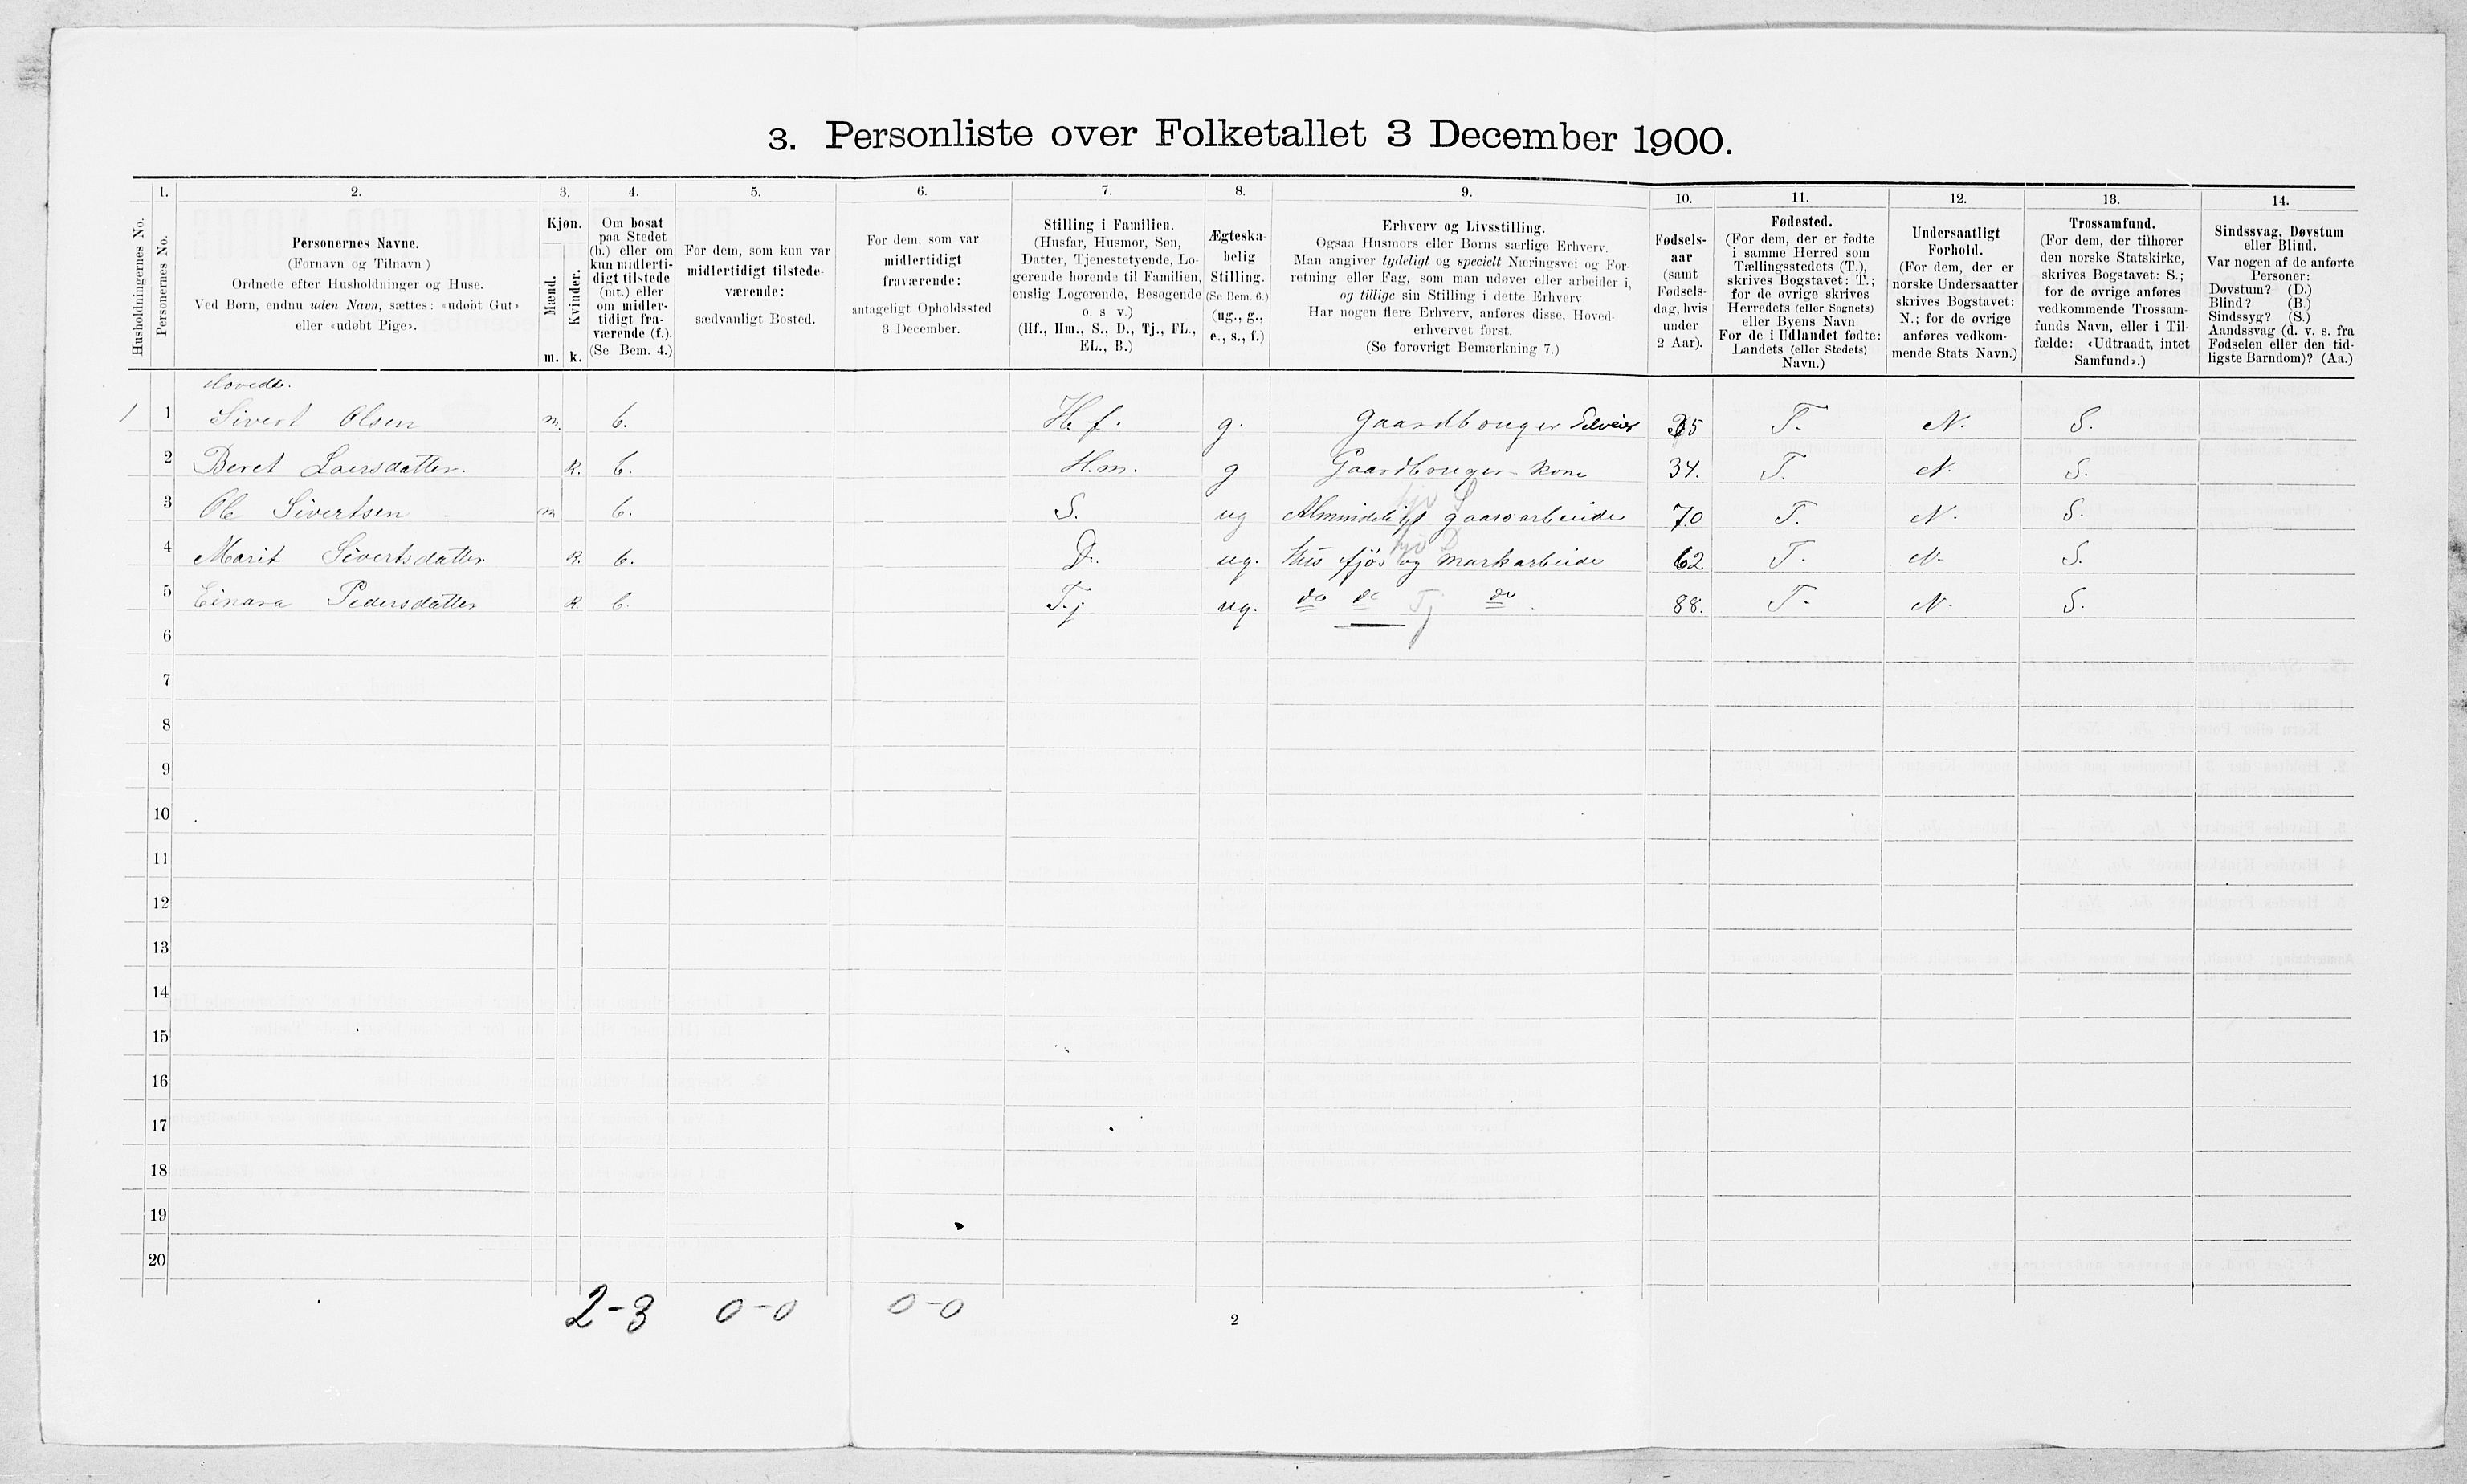 3. Personliste over Folketallet 3 December 1900.
1. 2. 3. 4. 5. 6. 7. 8. 9. 10. 11. 12. 13. 14.
Husholdningernes No.
Personernes No.
Personernes Navne.
(Fornavn og Tilnavn )
Ordnede efter Husholdninger og Huse.
Ved Børn, endnu uden Navn, sættes: «udøbt Gut»
eller «udøbt Pige».
Kjøn.
Mænd.
Kvinder.
m. k.
Om bosat
paa Stedet
(b.) eller om
kun midlerti-
digt tilstede
(mt.) eller
om midler-
tidigt fra-
værende (f.).
(Se Bem. 4.)
For dem, som kun var
midlertidigt tilstede-
værende:
sædvanligt Bosted.
For dem, som var
midlertidigt
fraværende:
antageligt Opholdssted
3 December.
Stilling i Familien.
(Husfar, Husmor, Søn,
Datter, Tjenestetyende, Lo-
gerende hørende til Familien,
enslig Logerende, Besøgende
o. s v.)
(Hf., Hm., S., D., Tj., FL.,
EL., B.)
Ægteska-
belig
Stilling.
(Se Bem. 6.)
(ug., g.,
e., s., f.)
Erhverv og Livsstilling.
Ogsaa Husmors eller Børns særlige Erhverv.
Man angiver tydeligt og specielt Næringsvei og For-
retning eller Fag, som man udøver eller arbeider i,
og tillige sin Stilling i dette Erhverv
Har nogen flere Erhverv, anføres disse, Hoved-
erhvervet først.
(Se forøvrigt Bemærkning 7.)
Fødsels-
aar
(samt
Fødsels-
dag, hvis
under
2 Aar).
Fødested.
(For dem, der er fødte
i samme Herred som
Tællingsstedets (T.),
skrives Bogstavet: T.;
for de øvrige skrives
Herredets (eller Sognets)
eller Byens Navn
For de i Udlandet fødte:
Landets (eller Stedets)
Navn.)
Undersaatligt
Forhold.
(For dem, der er
norske Undersaatter
skrives Bogstavet:
N.; for de øvrige
anføres vedkom-
mende Stats Navn.)
Trossamfund.
(For dem, der tilhører
den norske Statskirke,
skrives Bogstavet: S.;
for de øvrige anføres
vedkommende Trossam-
funds Navn, eller i Til-
fælde: «Udtraadt, intet
Samfund».)
Sindssvag, Døvstum
eller Blind.
Var nogen af de anførte
Personer:
Døvstum? (D.)
Blind? (B.)
Sindssyg? (S.)
Aandssvag (d. v. s. fra
Fødselen eller den tid-
ligste Barndom)? (Aa.)
Hovedb.
1 1 Sivert Olsen m. b. Hf. g. Gaardbruger Selveier 35 T. N. S.
2 Beret Laersdatter. K. b. Hm. g Gaardbruger-kone 34. T. N. S.
3 Ole Sivertsen m b. S. ug Almindeligt gaarsarbeide 70 T. N. S.
hjv S
4 Marit Sivertsdatter K. b. D. ug. Hus fjøs og markarbeide 62 T. N. S.
hjv D
5 Einara Pedersdatter K. b Tj ug. do do Tj do 88. T. N. S.
6
7
8
9
10
11
12
13
14
15
16
17
18
19
20
2-3 0-0 0-0
2